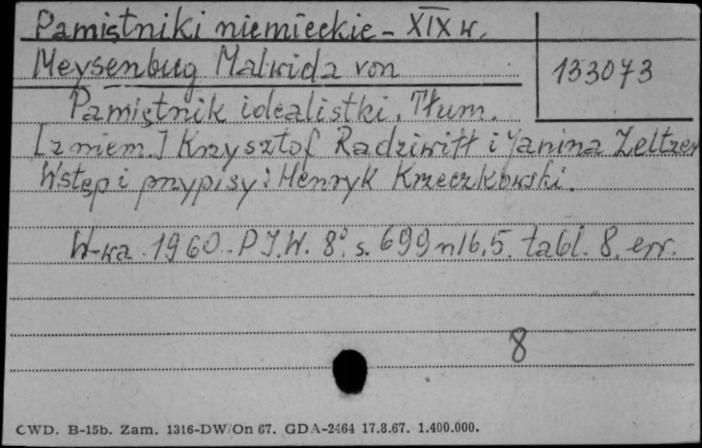 Pamiętniki niemieckie - XIX w.
Meysenbug Malwida von
133073
Pamiętnik idealistki. Tłum.
[z niem.] Krzysztof Radziwiłł i Janina Zeltzer
Wstęp i przypisy: Henryk Krzeczkowski.
W-wa 1960. PIW. 8° s. 699 nlb, 5. tabl. 8. err.
8
CWD. B-15b. Zam. 1316-DW/On 67. GDA-2464 17.8.67. 1.400.000.